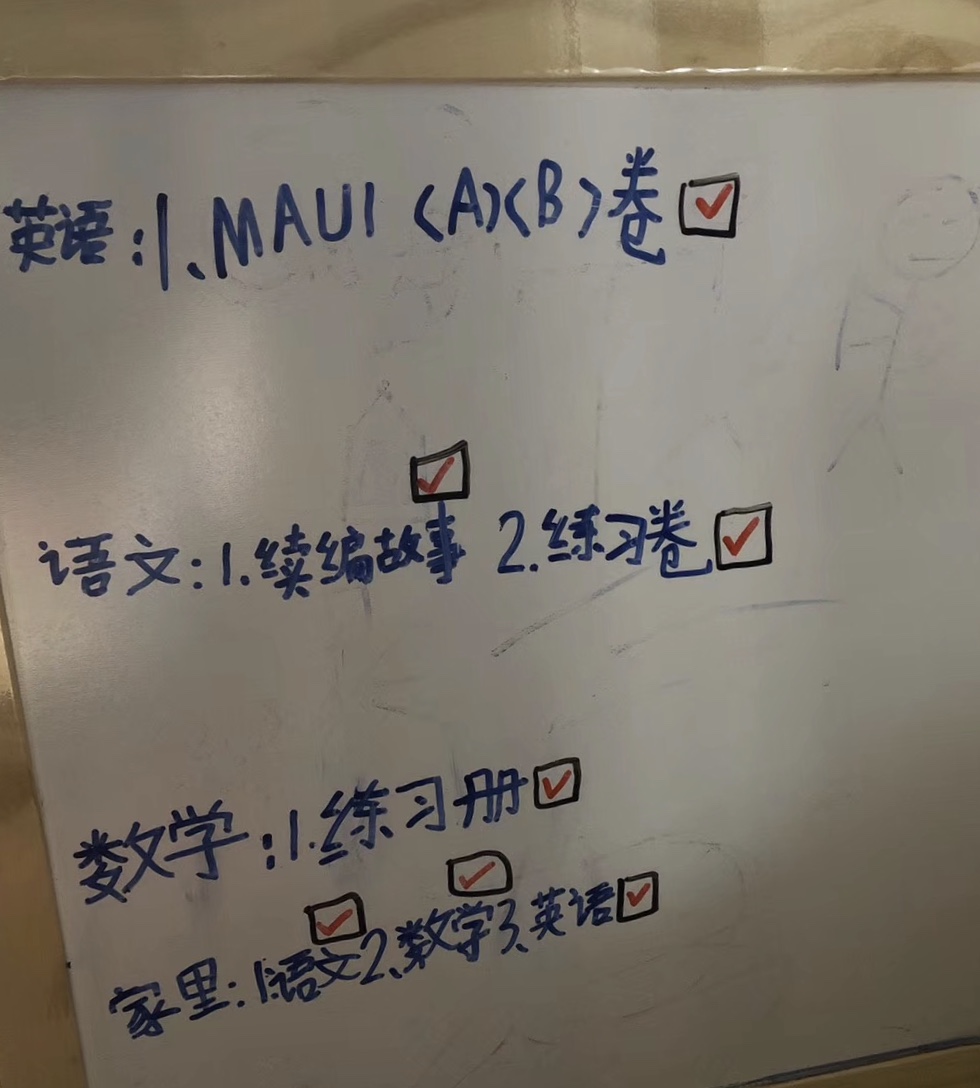 英语:1、MAUI〈A〉〈B〉卷☑
语文:1.续编故事☑ 2.练习卷☑
数学:1.练习册☑
家里:1.语文☑2、数学☑3、英语☑